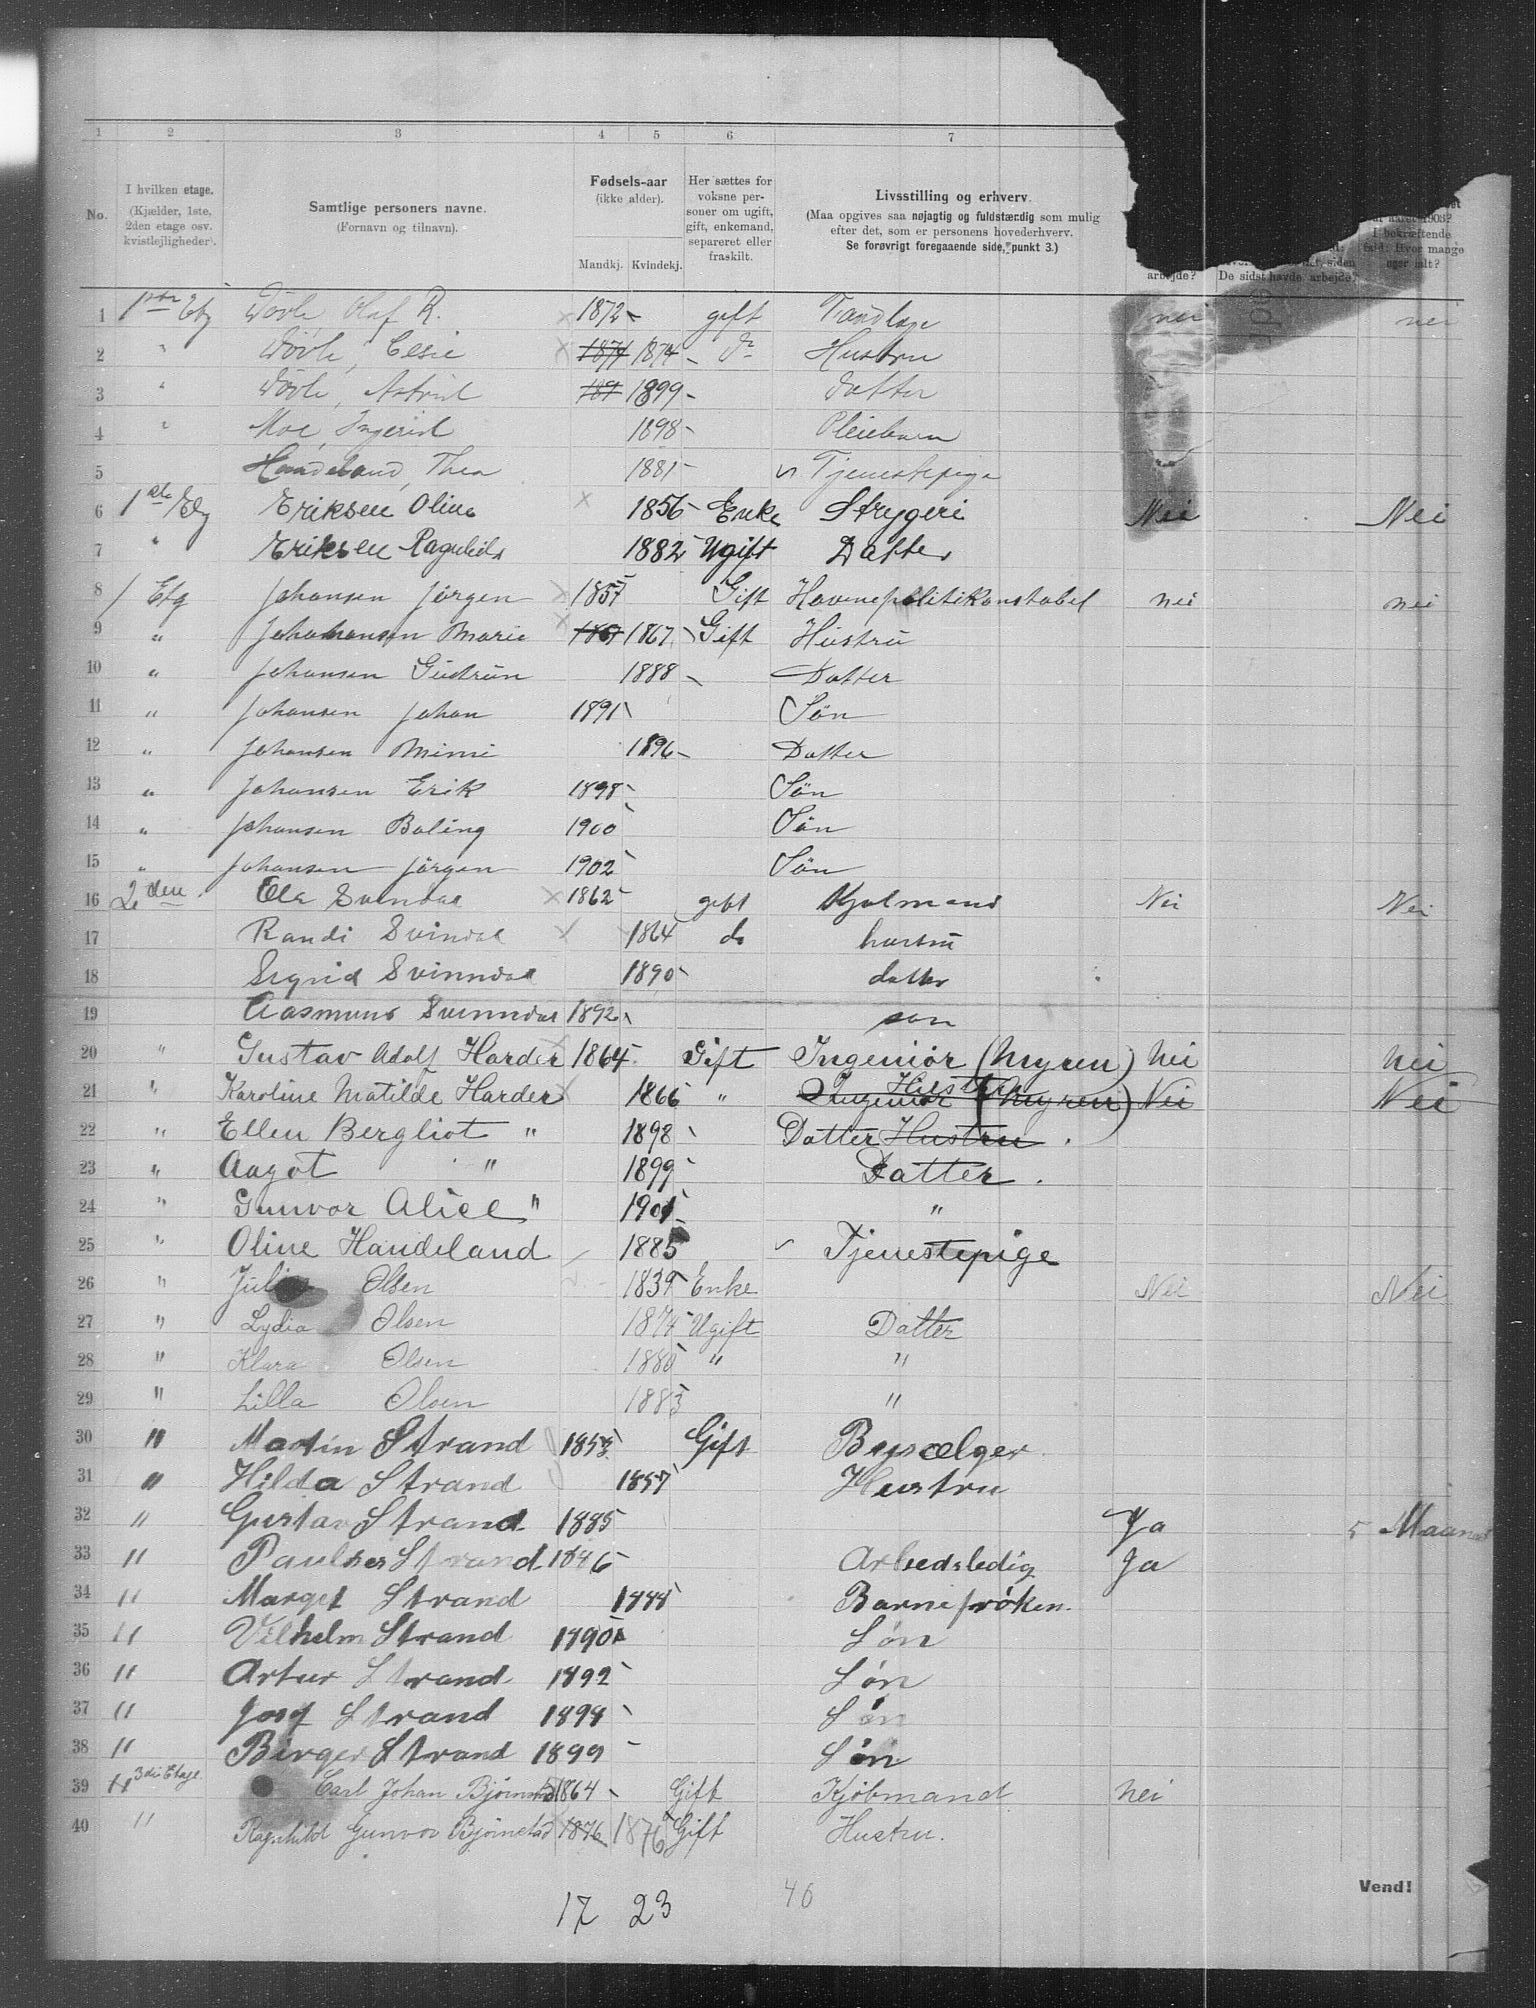 1 2 3 4 5 6 7
No. I hvilken etage. (Kjælder, 1ste, 2den etage osv. kvistlejligheder). Samtlige personers navne. (Fornavn og tilnavn). Fødsels-aar (ikke alder). Mandkj. Kvindekj. Her sættes for voksne personer om ugift, gift, enkemand, separeret eller fraskilt. Livsstilling og erhverv. (Maa opgives saa nøjagtig og fuldstændig som mulig efter det, som er personens hovederhverv. Se forøvrigt foregaaende side, punkt 3.) arbejde? siden De sidst havde arbejde? aaret 1903? I bekræftende fald: Hvor mange uger ialt?
1 1ste Etg Olaf R. 1872 gift Tandlæge nei nei
2 " 1874 1874 do Hustru
3 " Astrid 189 1899 Datter
4 " Moe, Ingerid 1898 Pleiebarn
5 Handeland, Thea 1881 Tjenestepige
6 1ste Etg Eriksen Oline 1856 Enke Strygeri Nei Nei
7 " Eriksen Ragnhild 1882 Ugift Datter
8 1 Etg Johansen Jørgen 1857 Gift Havnepolitikonstabel nei nei
9 " Johohansen Marie 1867 1867 Gift Hustru
10 " Johansen Gudrun 1888 Datter
11 " Johansen Johan 1891 Søn
12 " Johansen Mimi 1896 Datter
13 " Johansen Erik 1898 Søn
14 " Johansen Baling 1900 Søn
15 " Johansen Jørgen 1902 Søn
16 2den Ole Svindal 1862 gift Kjolmand Nei Nei
17 Randi Svindal 1864 do hustru
18 Sigrid Svinndal 1890 datter
19 Aasmund Svinndal 1892 søn
20 " Gustav Adolf Harder 1864 Gift Ingeniør (Myren) Nei Nei
21 " Karoline Matilde Harder 1866 " Ingeniør (Myren) Hustru Nei Nei
22 " Ellen Bergliot " 1898 Datter Hustru
23 " Aagot " 1899 Datter
24 " Gunvor Alice " 1901 "
25 " Oline Handeland 1885 Tjenestepige
26 " Olsen 1839 Enke Nei Nei
27 " Lydia Olsen 1875 Ugift Datter
28 " Klara Olsen 1880 " "
29 " Lilla Olsen 1883 "
30 " Martin Strand 1853 Gift Bysælger
31 " Hilda Strand 1857 Hustru
32 " Gustav Strand 1885 Ja 5 Maaned
33 " Strand 1886 Arbeidsledig Ja
34 " Margit Strand 1888 Barnefrøken
35 " Vilhelm Strand 1890 Søn
36 " Artur Strand 1892 Søn
37 " Josef Strand 1898 Søn
38 " Birger Strand 1899 Søn
39 " 3die Etage Carl Johan Bjørnstad 1864 Gift Kjøbmand Nei
40 " Ragnhild Gunvor Bjørnstad 1876 1876 Gift Hustru.
17 23 40
Vend!